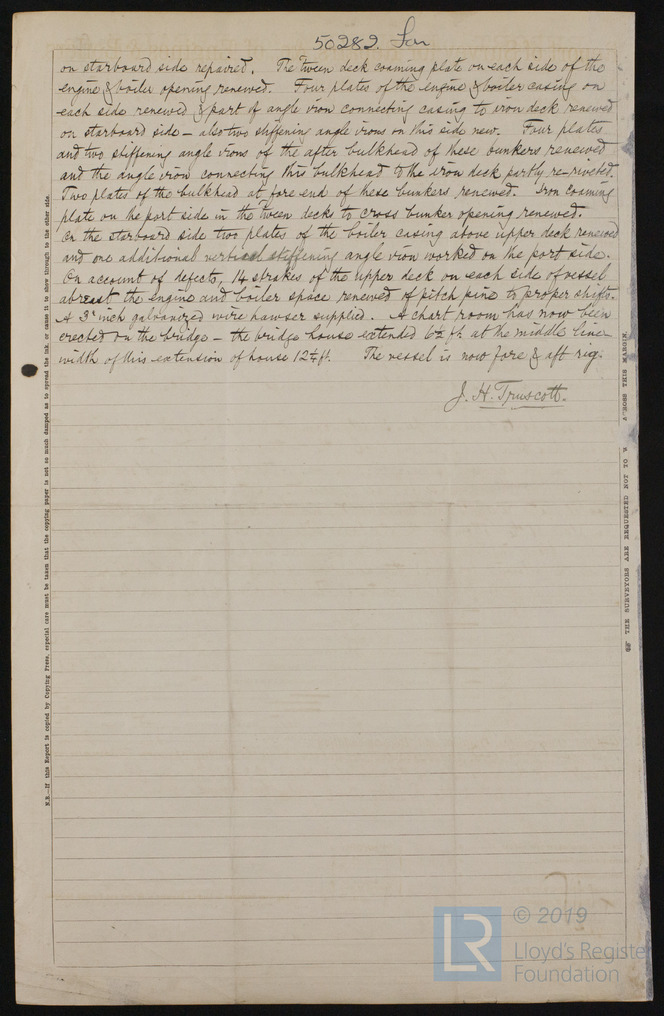 50282. Lon
on starboard side repaired. The tween deck coaming plate on each side of the
engine & boiler opening renewed. Four plates of the engine & boiler casing on
each side renewed & part of angle iron connecting casing to iron deck renewed
on starboard side – also two stiffening angle irons on this side new. Four plates
and two stiffening angle irons of the after bulkhead of these bunkers renewed
and the angle iron connecting this bulkhead to the iron deck partly re-riveted.
Two plates of the bulkhead at fore end of these bunkers renewed. Iron coaming
plate on the port side in the tween decks to cross bunker opening renewed.
On the starboard side two plates of the boiler casing above upper deck renewed
and one additional vertical stiffening angle iron worked on the port side.
On account of defects, 14 strakes of the upper deck on each side of vessel
abreast the engine and boiler space renewed of pitch pine to proper shifts.
A 3" inch galvanized wire hawser supplied. A chart room has now been
erected on the bridge – the bridge house extended 6½ ft. at the middle line
width of this extension of house 12½ft. The vessel is now fore & aft rig.
J. H. Truscott.
N.B.—If this Report is copied by Copying Press, especial care must be taken that the copying paper is not so much damped as to spread the ink, or cause it to show through to the other side.
THE SURVEYORS ARE REQUESTED NOT TO W
ROSS THIS MARGIN.
LR
© 2019
Lloyd's Register
Foundation